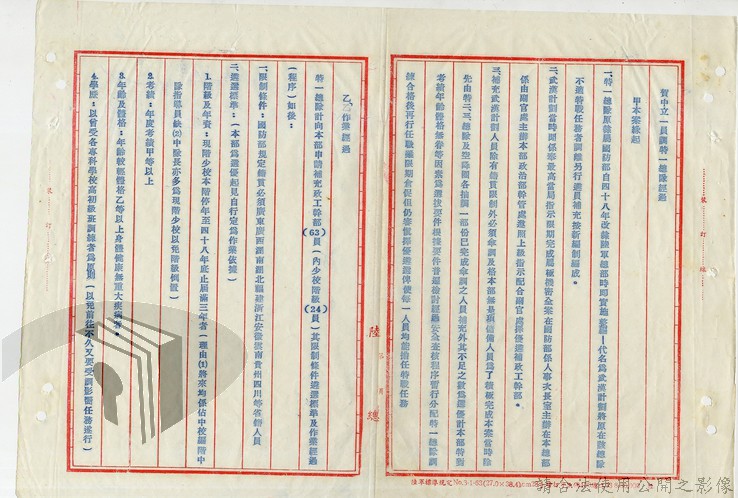 賀中立一員調特一總隊經過
甲本案緣起
一、特一總隊原隸屬國防部自四十八年改隸陸軍總部時即實施整編—代名為武漢計劃將原在該總隊
不適特戰任務者調離另行選員補充按新編制編成。
二、武漢計劃當時關係奉最高當局指示限期完成屬極機密全案在國防部係人事次長室主辦在本總部
係由副官處主辦本部政治部幹管處遵照上級指示配合副官處擇優選補政工幹部。
三、補充武漢計劃人員除有籍貫限制外必須傘訓及格本部無是項儲備人員為了積極完成本案當時除
先由特二三總隊及空降團各抽調一部份已完成傘訓之人員補充外其不足之數為選優計本部特對
考績年齡體格無眷等因素為選拔要件根據要件普遍檢討經過安全查核程序暫行分配特一總隊調
練合格後再行任職雖限期倉促但仍審慎擇優選選俾使每一人員均能擔任特戰任務
乙、作業經過
特一總隊計向本部申請補充政工幹部(63)員(內少校階級(24)員)其限制條件遴選標準及作業經過
(程序)如後：
一、限制條件：國防部規定籍貫必須廣東廣西湖南湖北福建浙江安徽雲南貴州四川等省籍人員
二、遴選標準：(本部為選優起見自行定為作業依據)
1.階級及年資：現階少校本階停年至四十八年底止屆滿三年者(理由(1)將來均係佔中校屬階中
隊指導員缺(2)中隊長亦多為現階少校以免階級倒置)
2.考績：年度考績甲等以上
3.年齡及體格：年齡較輕體格乙等以上身體健康無重大疾病者。
4.學歷：以曾受各專科學校高初級班訓練者為原則(以免前往不久又要受訓影響任務遂行)
裝訂線
裝訂線
陸 總
請合法使用公開之影像